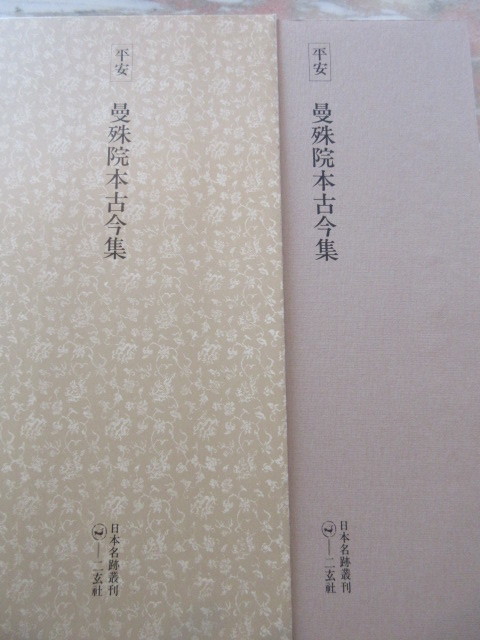 平安
曼殊院本古今集
日本名跡叢刊
二玄社
平安
曼殊院本古今集
日本名跡叢刊
二玄社